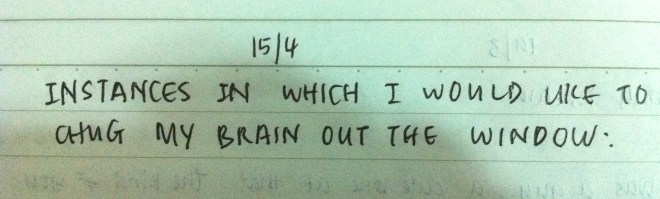 15/4
INSTANCES IN WHICH I WOULD LIKE TO
CHUG MY BRAIN OUT THE WINDOW: